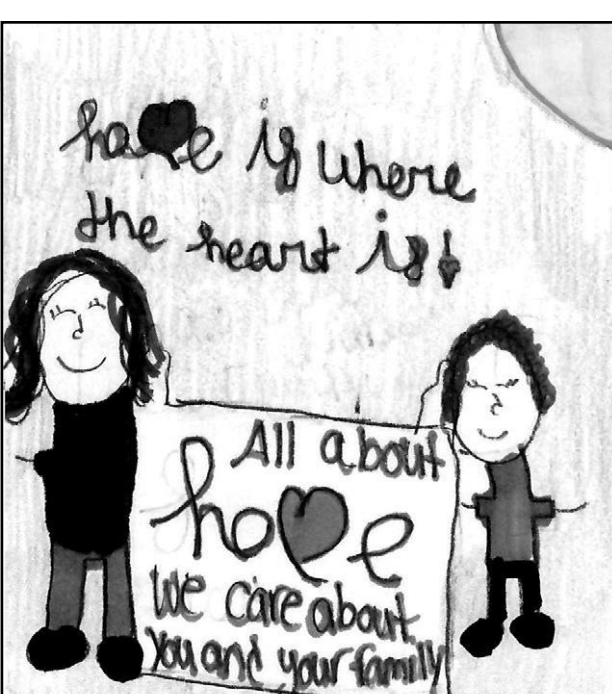 ho♥e is where
the heart is!
All about
ho♥e
We care about
you and your family